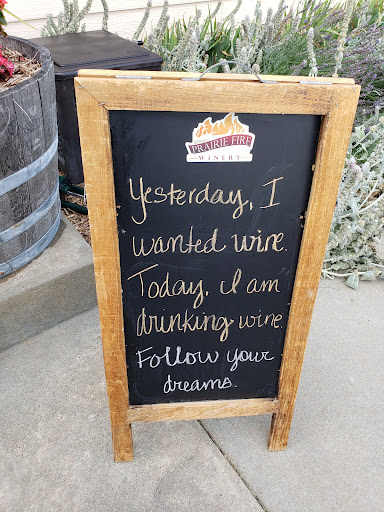 PRAIRIE FIRE
WINERY
Yesterday, I
wanted wine.
Today, I am
drinking wine.
Follow your
dreams.